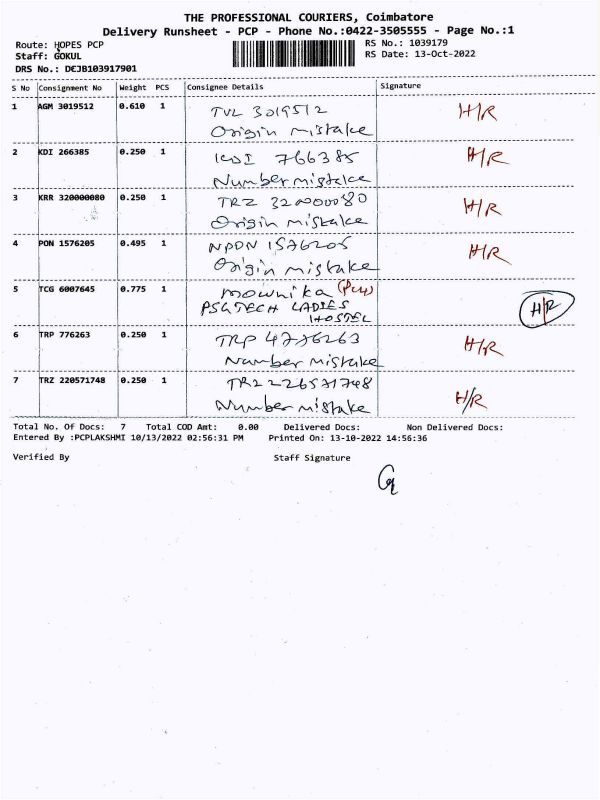 THE PROFESSIONAL COURIERS, Coimbatore
Delivery Runsheet - PCP - Phone No.:0422-3505555 - Page No.:1
Route: HOPES PCP RS No.: 1039179
Staff: GOKUL RS Date: 13-Oct-2022
DRS No.: DEJB103917901
S No Consignment No Weight PCS Consignee Details Signature
1 AGM 3019512 0.610 1 TVL 3019512 H/R
Origin mistake
2 KDI 266385 0.250 1 KDI 766385 H/R
Number mistake
3 KRR 320000080 0.250 1 TRZ 320000080 H/R
Origin mistake
4 PON 1576205 0.495 1 NPDN 1576205 H/R
Origin mistake
5 TCG 6007645 0.775 1 mownika
PSGTECH LADIES H/R
HOSTEL
6 TRP 776263 0.250 1 TRP 4776263 H/R
Number mistake
7 TRZ 220571748 0.250 1 TRZ 226571748
Number mistake H/R
Total No. Of Docs: 7 Total COD Amt: 0.00 Delivered Docs: Non Delivered Docs:
Entered By :PCPLAKSHMI 10/13/2022 02:56:31 PM Printed On: 13-10-2022 14:56:36
Verified By Staff Signature